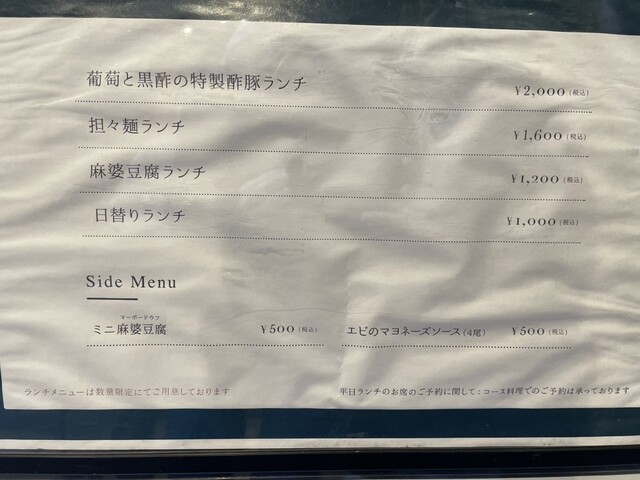 葡萄と黒酢の特製酢豚ランチ ¥2,000(税込)
担々麺ランチ ¥1,600(税込)
麻婆豆腐ランチ ¥1,200(税込)
日替りランチ ¥1,000(税込)
Side Menu
マーボードウフ
ミニ麻婆豆腐 ¥500(税込) エビのマヨネーズソース(4尾) ¥500(税込)
ランチメニューは数量限定にてご用意しております 平日ランチのお席のご予約に関して:コース料理でのご予約は承っております